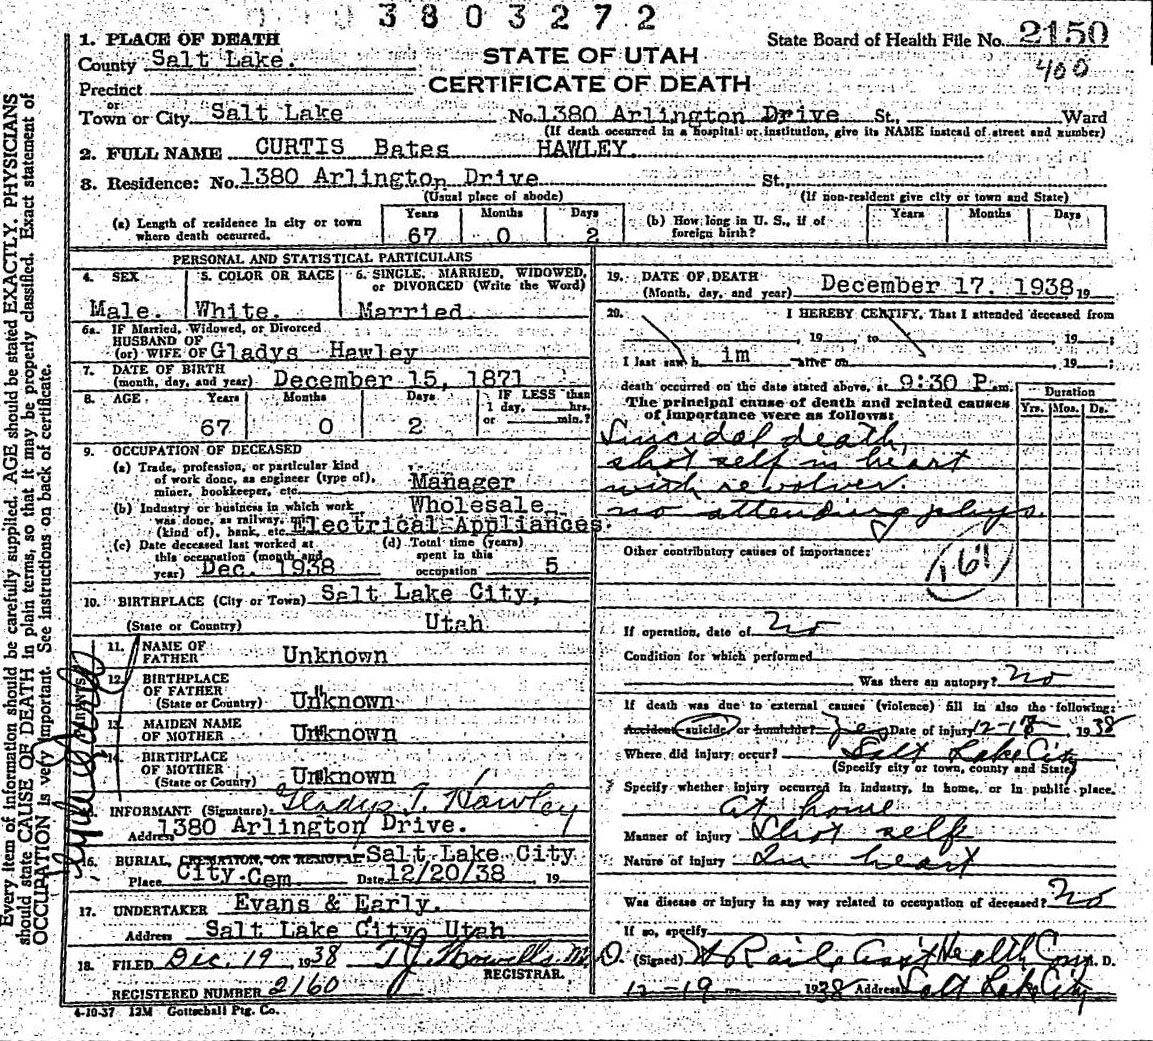 3803272
1. PLACE OF DEATH
County Salt Lake.
Precinct
or
Town or City Salt Lake
STATE OF UTAH
CERTIFICATE OF DEATH
State Board of Health File No. 2150
400
No. 1380 Arlington Drive St., Ward
(If death occurred in a hospital or institution, give its NAME instead of street and number)
2. FULL NAME CURTIS Bates HAWLEY.
3. Residence: No. 1380 Arlington Drive St.,
(Usual place of abode) (If non-resident give city or town and State)
(a) Length of residence in city or town where death occurred. Years 67 Months 0 Days 2
(b) How long in U. S., if of foreign birth? Years Months Days
PERSONAL AND STATISTICAL PARTICULARS
4. SEX Male.
5. COLOR OR RACE White.
6. SINGLE, MARRIED, WIDOWED, or DIVORCED (Write the Word) Married.
6a. IF Married, Widowed, or Divorced
HUSBAND OF
(or) WIFE OF Gladys Hawley
7. DATE OF BIRTH
(month, day, and year) December 15, 1871
8. AGE Years 67 Months 0 Days 2 IF LESS than 1 day, hrs. or min.?
9. OCCUPATION OF DECEASED
(a) Trade, profession, or particular kind
of work done, as engineer (type of),
miner, bookkeeper, etc. Manager
(b) Industry or business in which work Wholesale
was done, as railway,
(kind of), bank, etc. Electrical Appliances.
(c) Date deceased last worked at
this occupation (month and
year) Dec. 1938
(d) Total time (years)
spent in this
occupation 5
10. BIRTHPLACE (City or Town) Salt Lake City,
(State or Country) Utah
11. NAME OF
FATHER Unknown
12. BIRTHPLACE
OF FATHER
(State or Country) Unknown
13. MAIDEN NAME
OF MOTHER Unknown
14. BIRTHPLACE
OF MOTHER
(State or Country) Unknown
PARENTS
INFORMANT (Signature) Gladys T. Hawley
Address 1380 Arlington Drive.
16. BURIAL, CREMATION, OR REMOVAL Salt Lake City
Place City Cem. Date 12/20/38 19
17. UNDERTAKER Evans & Early.
Address Salt Lake City, Utah
18. FILED Dec. 19 1938 T J Howells M.D.
REGISTRAR.
REGISTERED NUMBER 2160
4-10-37 12M Gottschall Ptg. Co.
19. DATE OF DEATH
(Month, day, and year) December 17. 1938, 19
20. I HEREBY CERTIFY, That I attended deceased from
, 19 , to , 19 ;
I last saw h im alive on , 19 ;
death occurred on the date stated above, at 9:30 P.m.
The principal cause of death and related causes
of importance were as follows:
Duration
Yrs. Mos. Ds.
Suicidal death,
shot self in heart
with revolver.
no attending phys.
Other contributory causes of importance:
If operation, date of No
Condition for which performed
Was there an autopsy? No
If death was due to external causes (violence) fill in also the following:
Accident suicide or homicide? Yes Date of injury 12-17- 1938
Where did injury occur? Salt Lake City
(Specify city or town, county and State)
Specify whether injury occurred in industry, in home, or in public place.
At home
Manner of injury Shot self
Nature of injury In heart
Was disease or injury in any way related to occupation of deceased? No
If so, specify
(Signed) Ass't Health M. D.
12-19- 1938 Address Salt Lake City
Every item of information should be carefully supplied. AGE should be stated EXACTLY. PHYSICIANS
should state CAUSE OF DEATH in plain terms, so that it may be properly classified. Exact statement of
OCCUPATION is very important. See instructions on back of certificate.